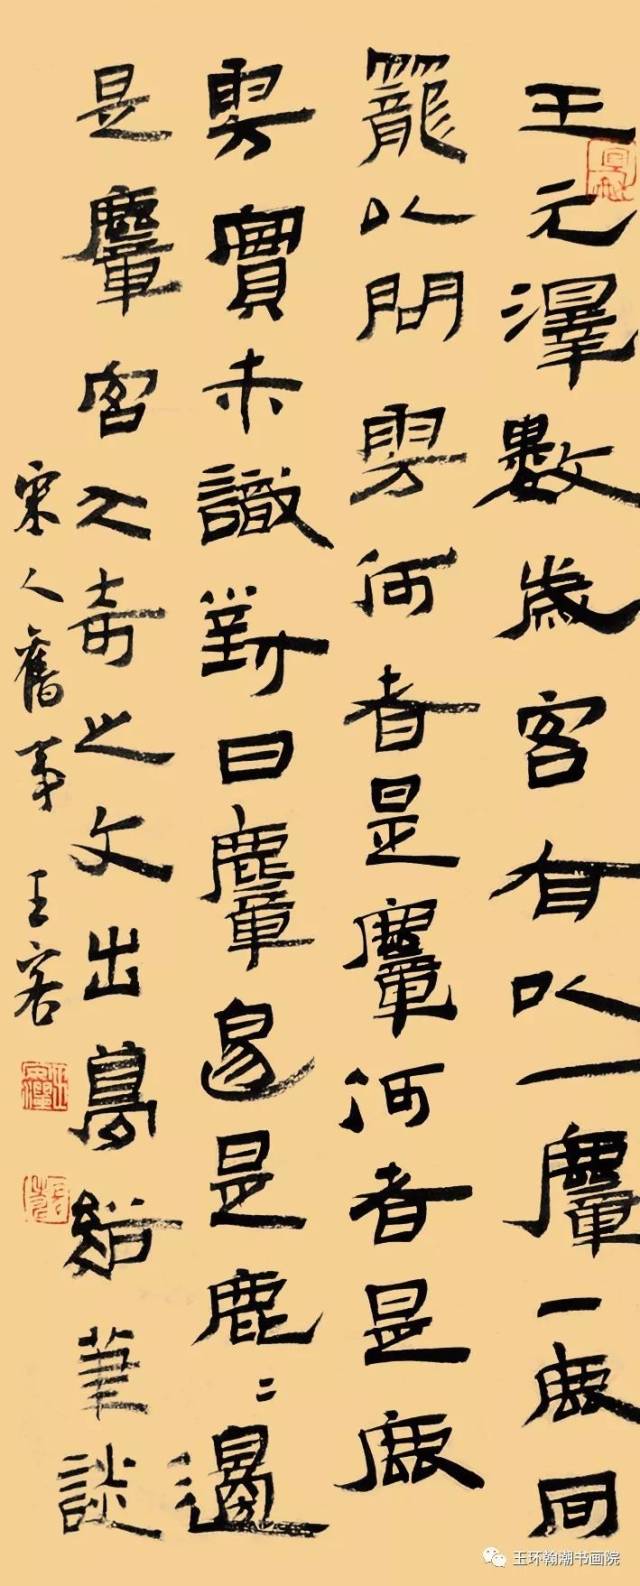 王元澤數歲客有以一麞一鹿同
籠以問雱何者是麞何者是鹿
雱實未識對曰麞邊是鹿〻邊
是麞客大奇之文出夢谿筆談
宋人舊事 王客
玉环翰潮书画院